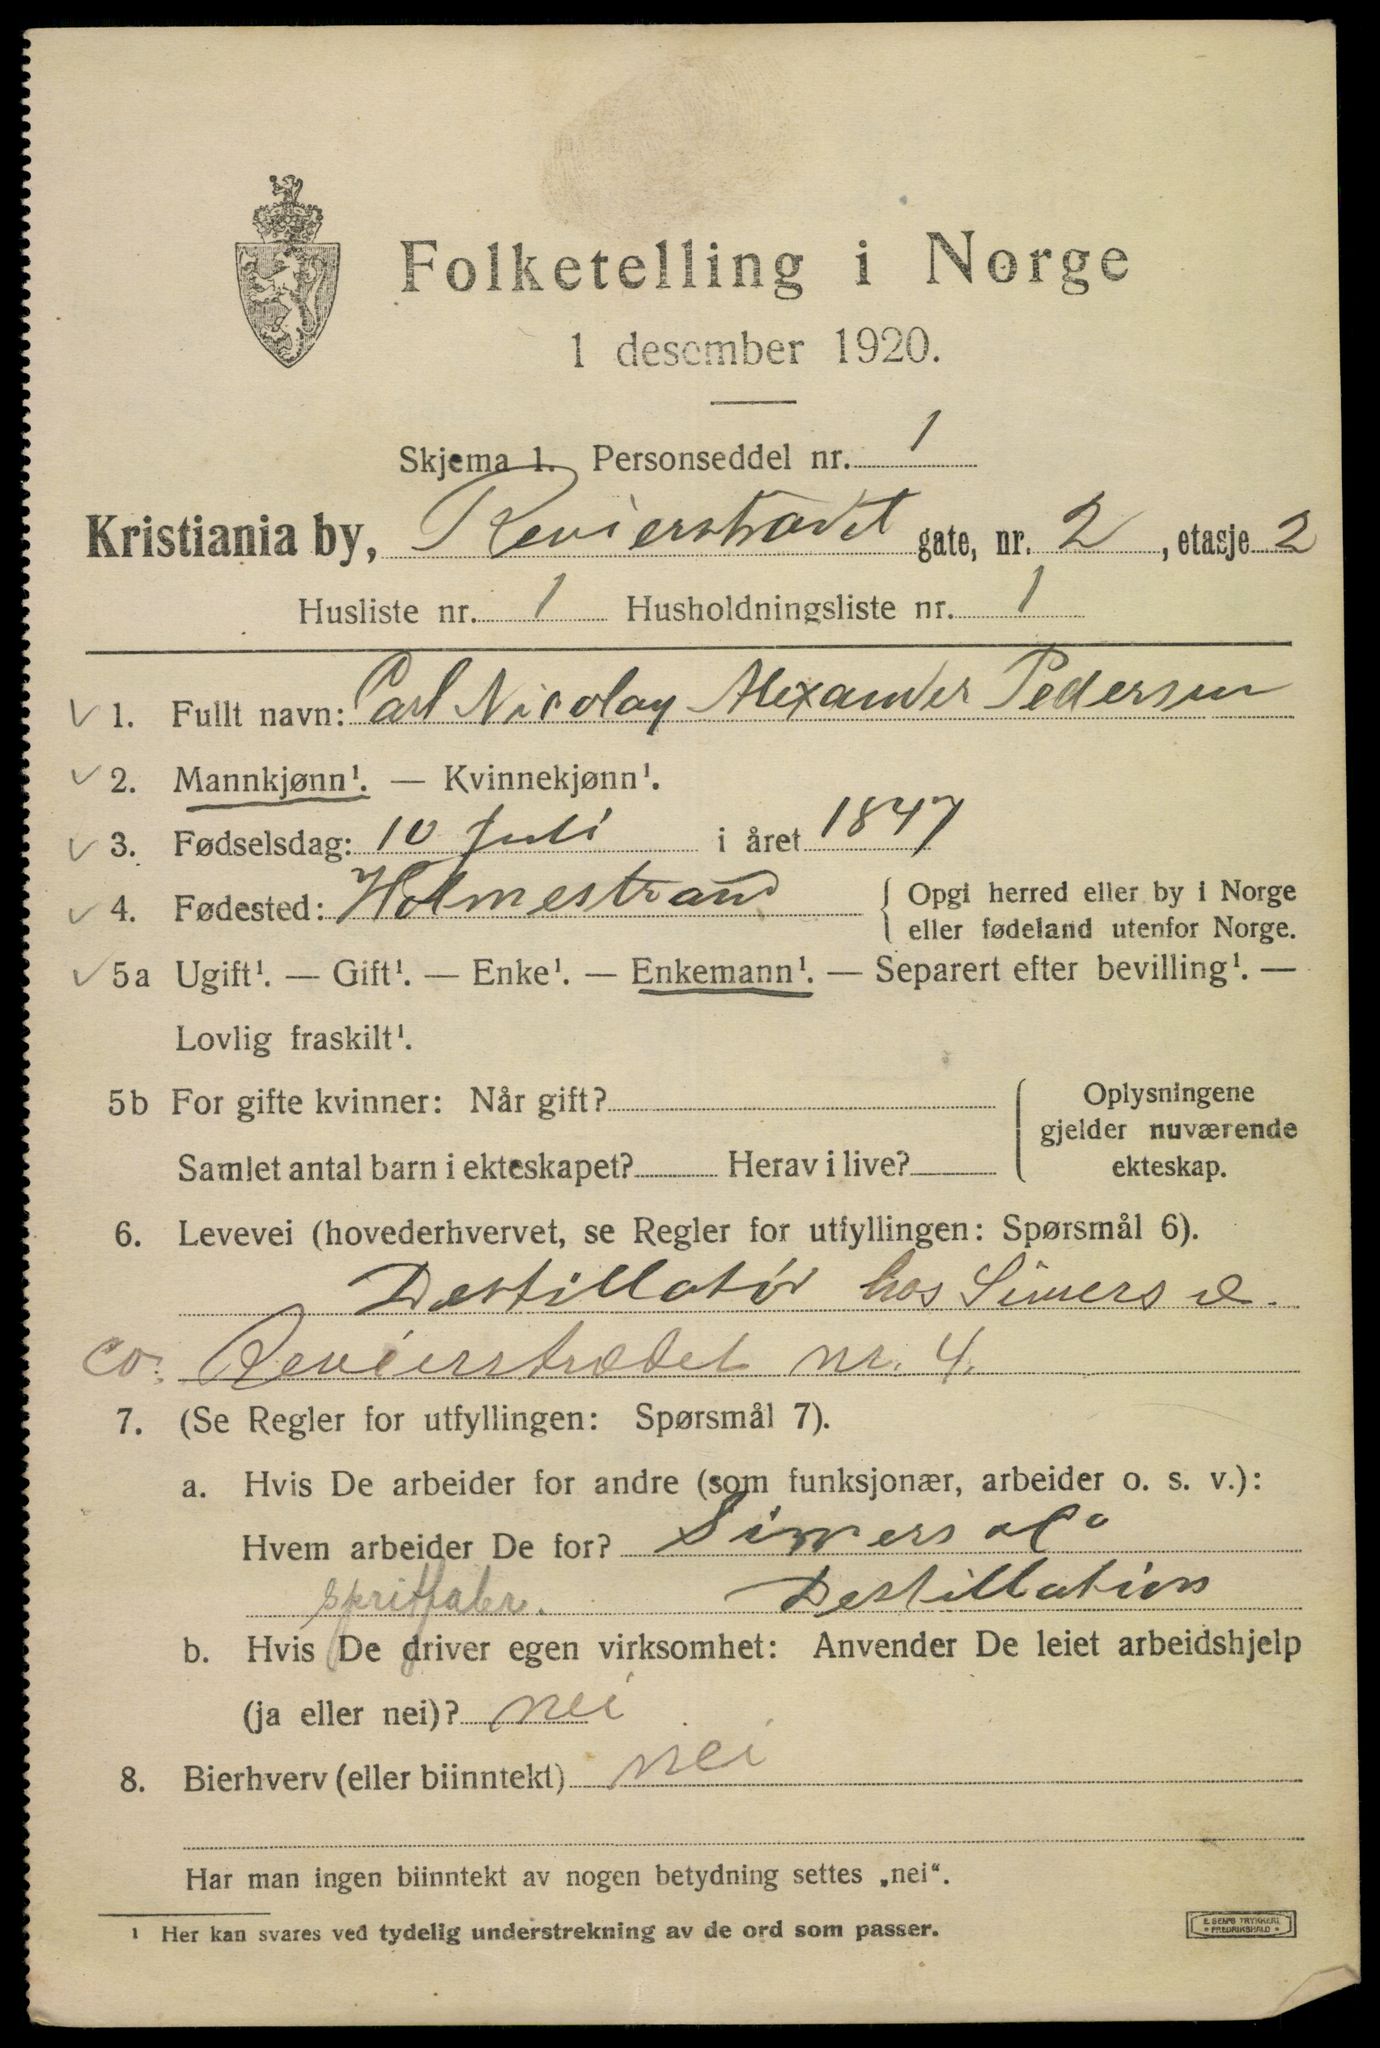 Folketelling i Norge
1 desember 1920.
Skjema 1. Personseddel nr. 1
Kristiania by, Revierstrædet gate, nr. 2, etasje 2
Husliste nr. 1 Husholdningsliste nr. 1
1. Fullt navn: Carl Nicolay Alexander Pedersen
2. Mannkjønn¹. — Kvinnekjønn¹.
3. Fødselsdag: 10 juli i året 1847
4. Fødested: Holmestrand { Opgi herred eller by i Norge
eller fødeland utenfor Norge.
5a Ugift¹. — Gift¹. — Enke¹. — Enkemann¹. — Separert efter bevilling¹. —
Lovlig fraskilt¹.
5b For gifte kvinner: Når gift? Oplysningene
gjelder nuværende
Samlet antal barn i ekteskapet? Herav i live? ekteskap.
6. Levevei (hovederhvervet, se Regler for utfyllingen: Spørsmål 6).
Destillatør hos Simers &
Co. Revierstrædet nr. 4.
7. (Se Regler for utfyllingen: Spørsmål 7).
a. Hvis De arbeider for andre (som funksjonær, arbeider o. s. v.):
Hvem arbeider De for? Simers & Co
spritfabr. Destillation
b. Hvis De driver egen virksomhet: Anvender De leiet arbeidshjelp
(ja eller nei)? nei
8. Bierhverv (eller biinntekt) nei
Har man ingen biinntekt av nogen betydning settes „nei“.
¹ Her kan svares ved tydelig understrekning av de ord som passer.
E. SEM'S TRYKKERI
* FREDRIKSHALD *